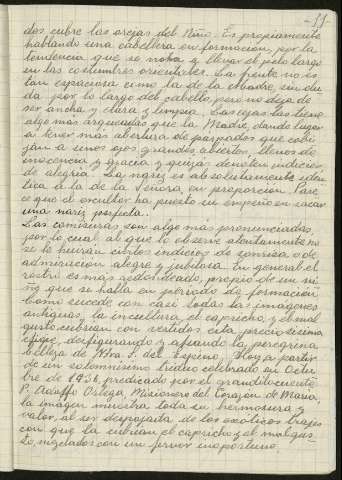 -11-
dos cubre las orejas del Niño. Es propiamente
hablando una cabellera en formación, por la
tendencia que se nota y llevar el pelo largo
en las costumbres orientales. La frente no es
tan espaciosa como la de la Madre, sin du
da por lo largo del cabello, pero no deja de
ser ancha y clara y limpia. Las cejas las tiene
algo más arqueadas que la Madre, dando lugar
a tener más abertura de párpados que cobi
jan a unos ojos grandes abiertos, llenos de
inocencia y gracia y quizás denotan indicios
de alegría. La nariz es absolutamente idén
tica a la de la Señora, en proporción. Pare
ce que el escultor ha puesto un empeño en sacar
una nariz perfecta.
Las comisuras son algo más pronunciadas,
por lo cual al que lo observe atentamente no
se le huirán ciertos indicios de sonrisa o de
admiración alegre y jubilosa. En general el
rostro es más redondeado, propio de un ni
ño que se halla en período de formación
Como sucede con casi todas las imágenes
antiguas, la incultura, el capricho y el mal
gusto cubrían con vestidos esta preciosísima
efigie, desfigurando y afeando la peregrina
belleza de Ntra. S. del Espino. Hoy a partir
de un solemnísimo triduo celebrado en Octu
bre de 1936, predicado por el grandilocuente
P. Adolfo Ortega, Misionero del Corazón de María,
la imagen muestra toda su hermosura y
valor, al ser despojada de los exóticos trajes
con que la cubrían el capricho y el mal gus-
to, mezclados con un fervor inoportuno.